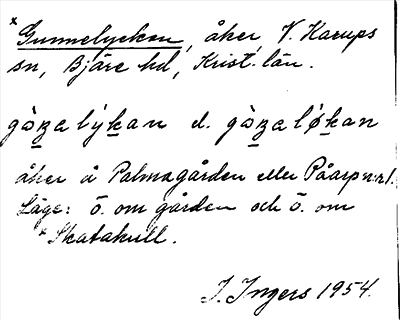 * Gunnelyckan, åker, V. Karups
sn, Bjäre hd, Krist. län.
gòꞥalýkan el. gòꞥaløkan
åker å Palmagården eller Påarp n:r 1.
Läge: ö. om gården och ö. om
* Skatakull.
I. Ingers 1954.